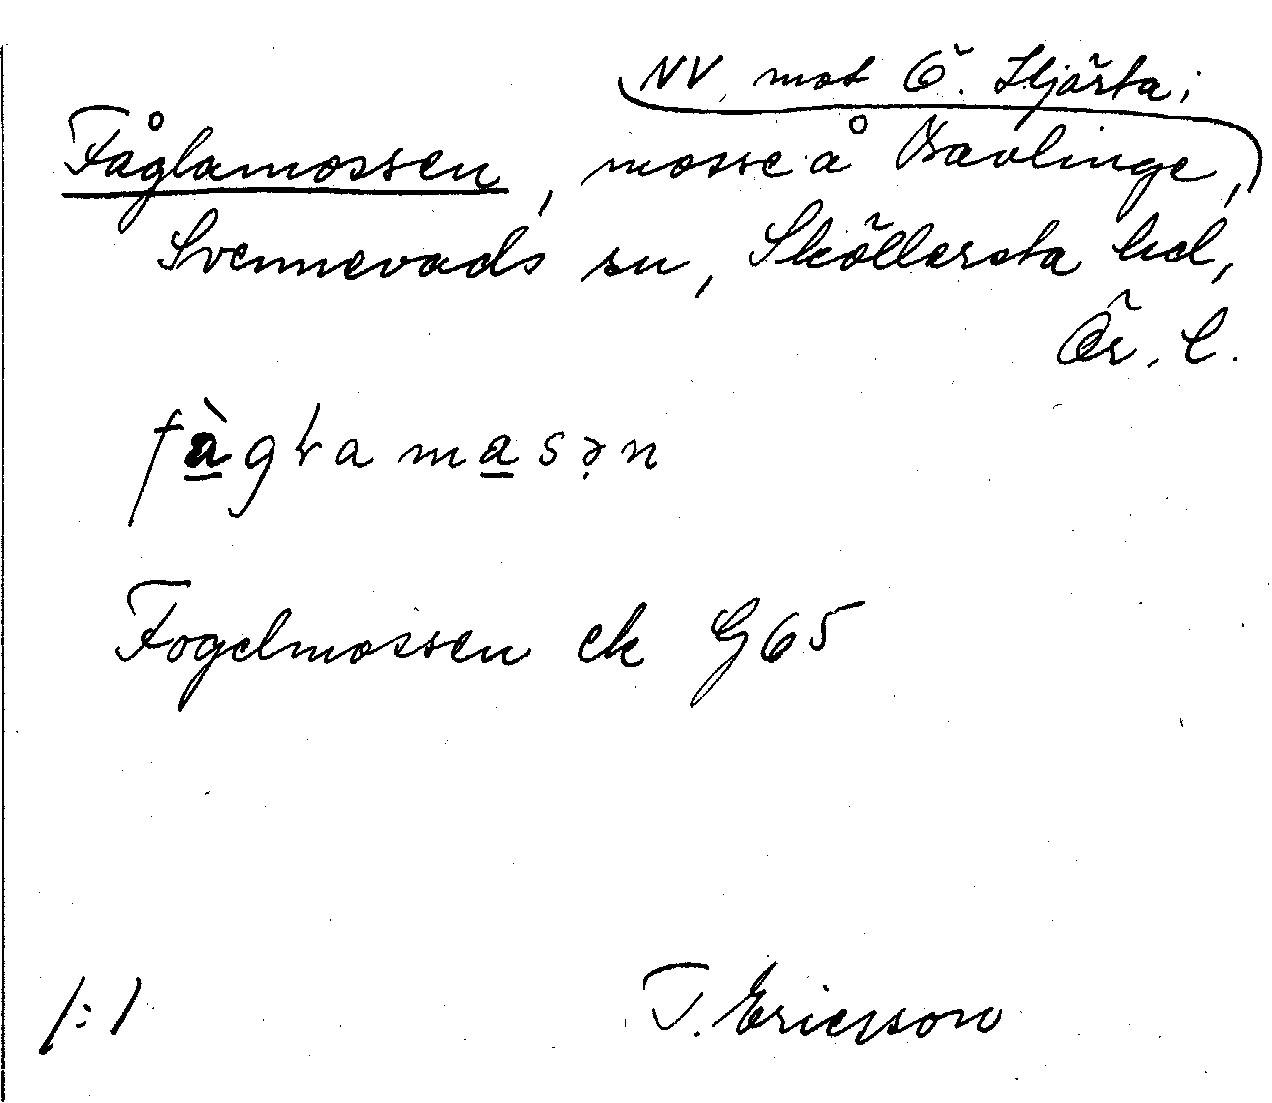 NV mot Ö. Hjärta;
Fåglamossen, mosse å Bavlinge,
Svennevads sn, Sköllersta hd,
Ör. l.
Fogelmossen ek G65
1:1
T. Ericsson